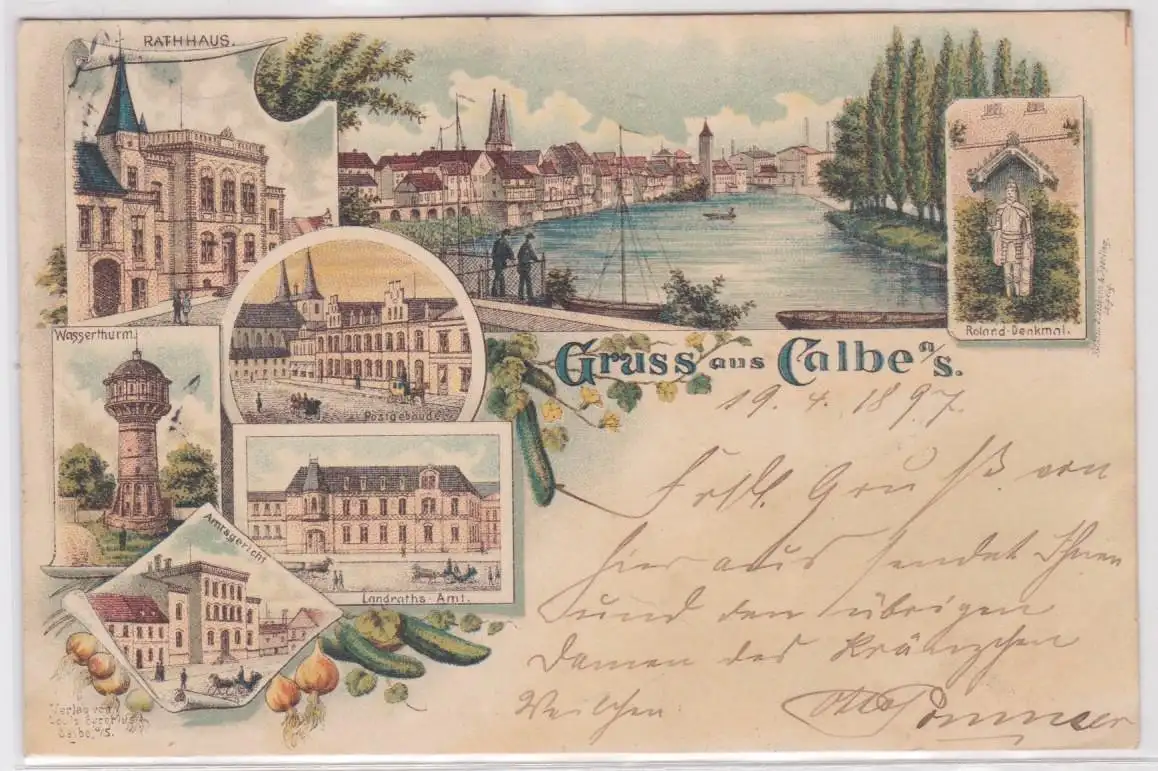 RATHHAUS.
Wasserthurm.
Postgebäude.
Roland-Denkmal.
Gruss aus Calbe a/S.
19. 4. 1897.
Gruß von
hier aus sendet Ihnen
und den übrigen
Damen des Kränzchen
Veilchen.
Pommer
Landraths-Amt.
Amtsgericht
Verlag von
Louis
Calbe, a/S.